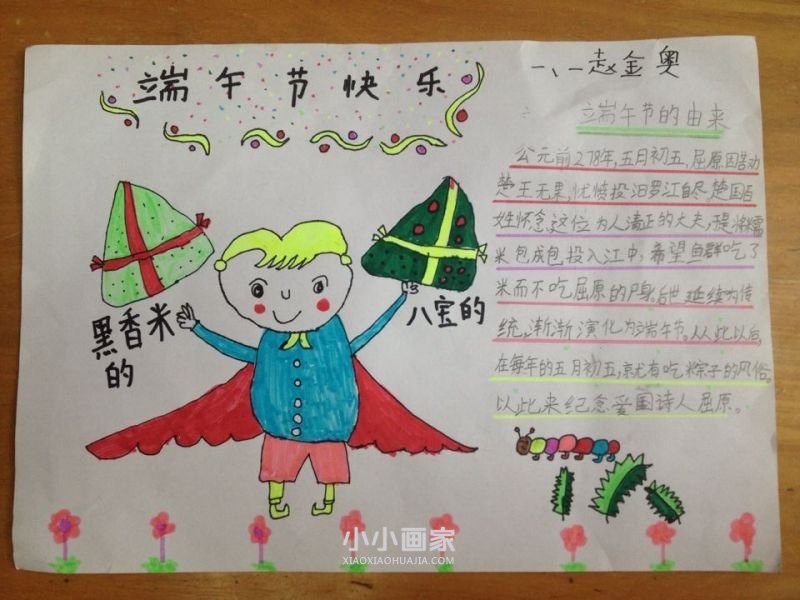 端午节快乐
一、一赵金奥
端午节的由来
公元前278年,五月初五,屈原因劝
楚王无果,忧愤投汨罗江自尽,楚国百
姓怀念这位为人清正的大夫,提将糯
米包成包投入江中,希望鱼群吃了
米而不吃屈原的尸身,后世延续为传
统,渐渐演化为端午节。从此以后,
在每年的五月初五,就有吃粽子的风俗,
以此来纪念爱国诗人屈原。
黑香米
的
八宝的
小小画家
XIAOXIAOHUAJIA.COM